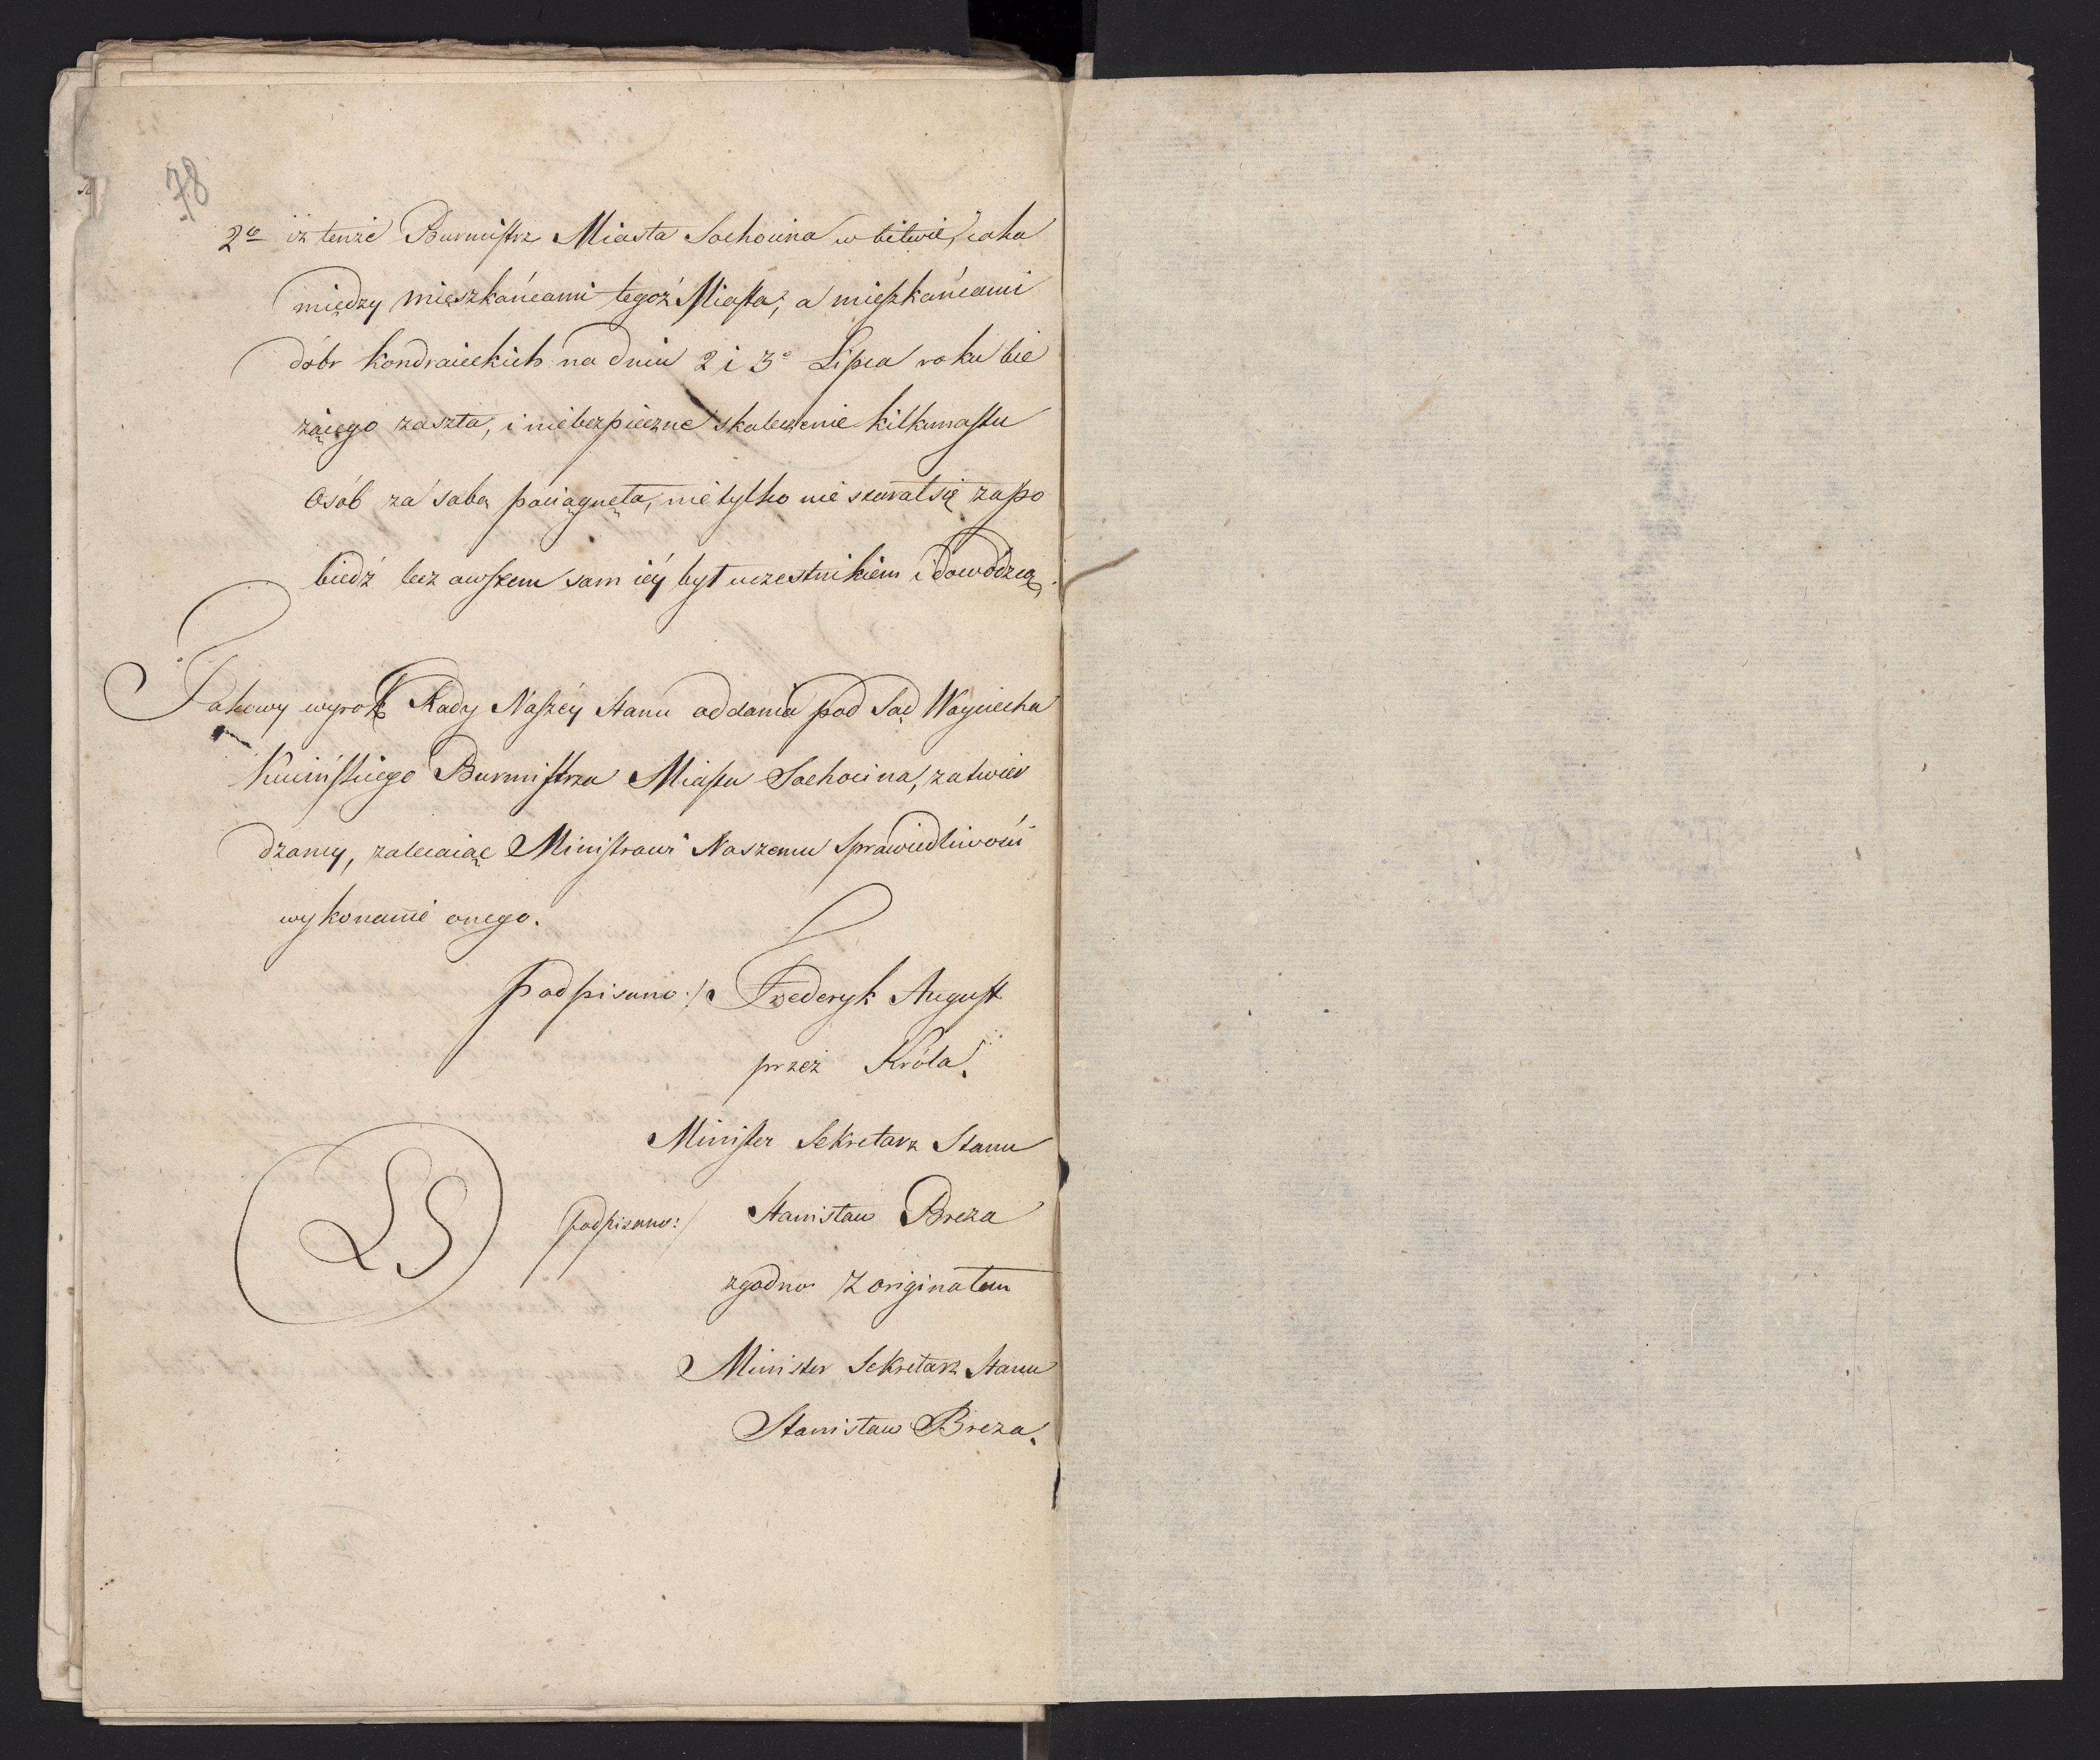 78
2o iż tenże Burmistrz Miasta Sochocina w bitwie, iaka
między mieszkańcami tegoż Miasta, a mieszkańcami
dóbr Kondraieckich na dniu 2 i 3o Lipca roku bie
żącego zaszła, i niebezpieczne skaleczenie kilkunastu
Osób za sobą pociągnęła, nie tylko nie starał się zapo
biedź lecz owszem sam iéy był uczestnikiem i dowódzcą.
Takowy wyrok Rady Naszéy Stanu oddania pod Sąd Woyciecha
Burmistrza Miasta Sochocina, zatwier
dzamy, zalecaiąc Ministrowi Naszemu Sprawiedliwości
wykonanie onego.
Podpisano:/ Frederyk August
przez Króla.
Minister Sekretarz Stanu
LS podpisano:/ Stanisław Breza
zgodno z originałem
Minister Sekretarz Stanu
Stanisław Breza.